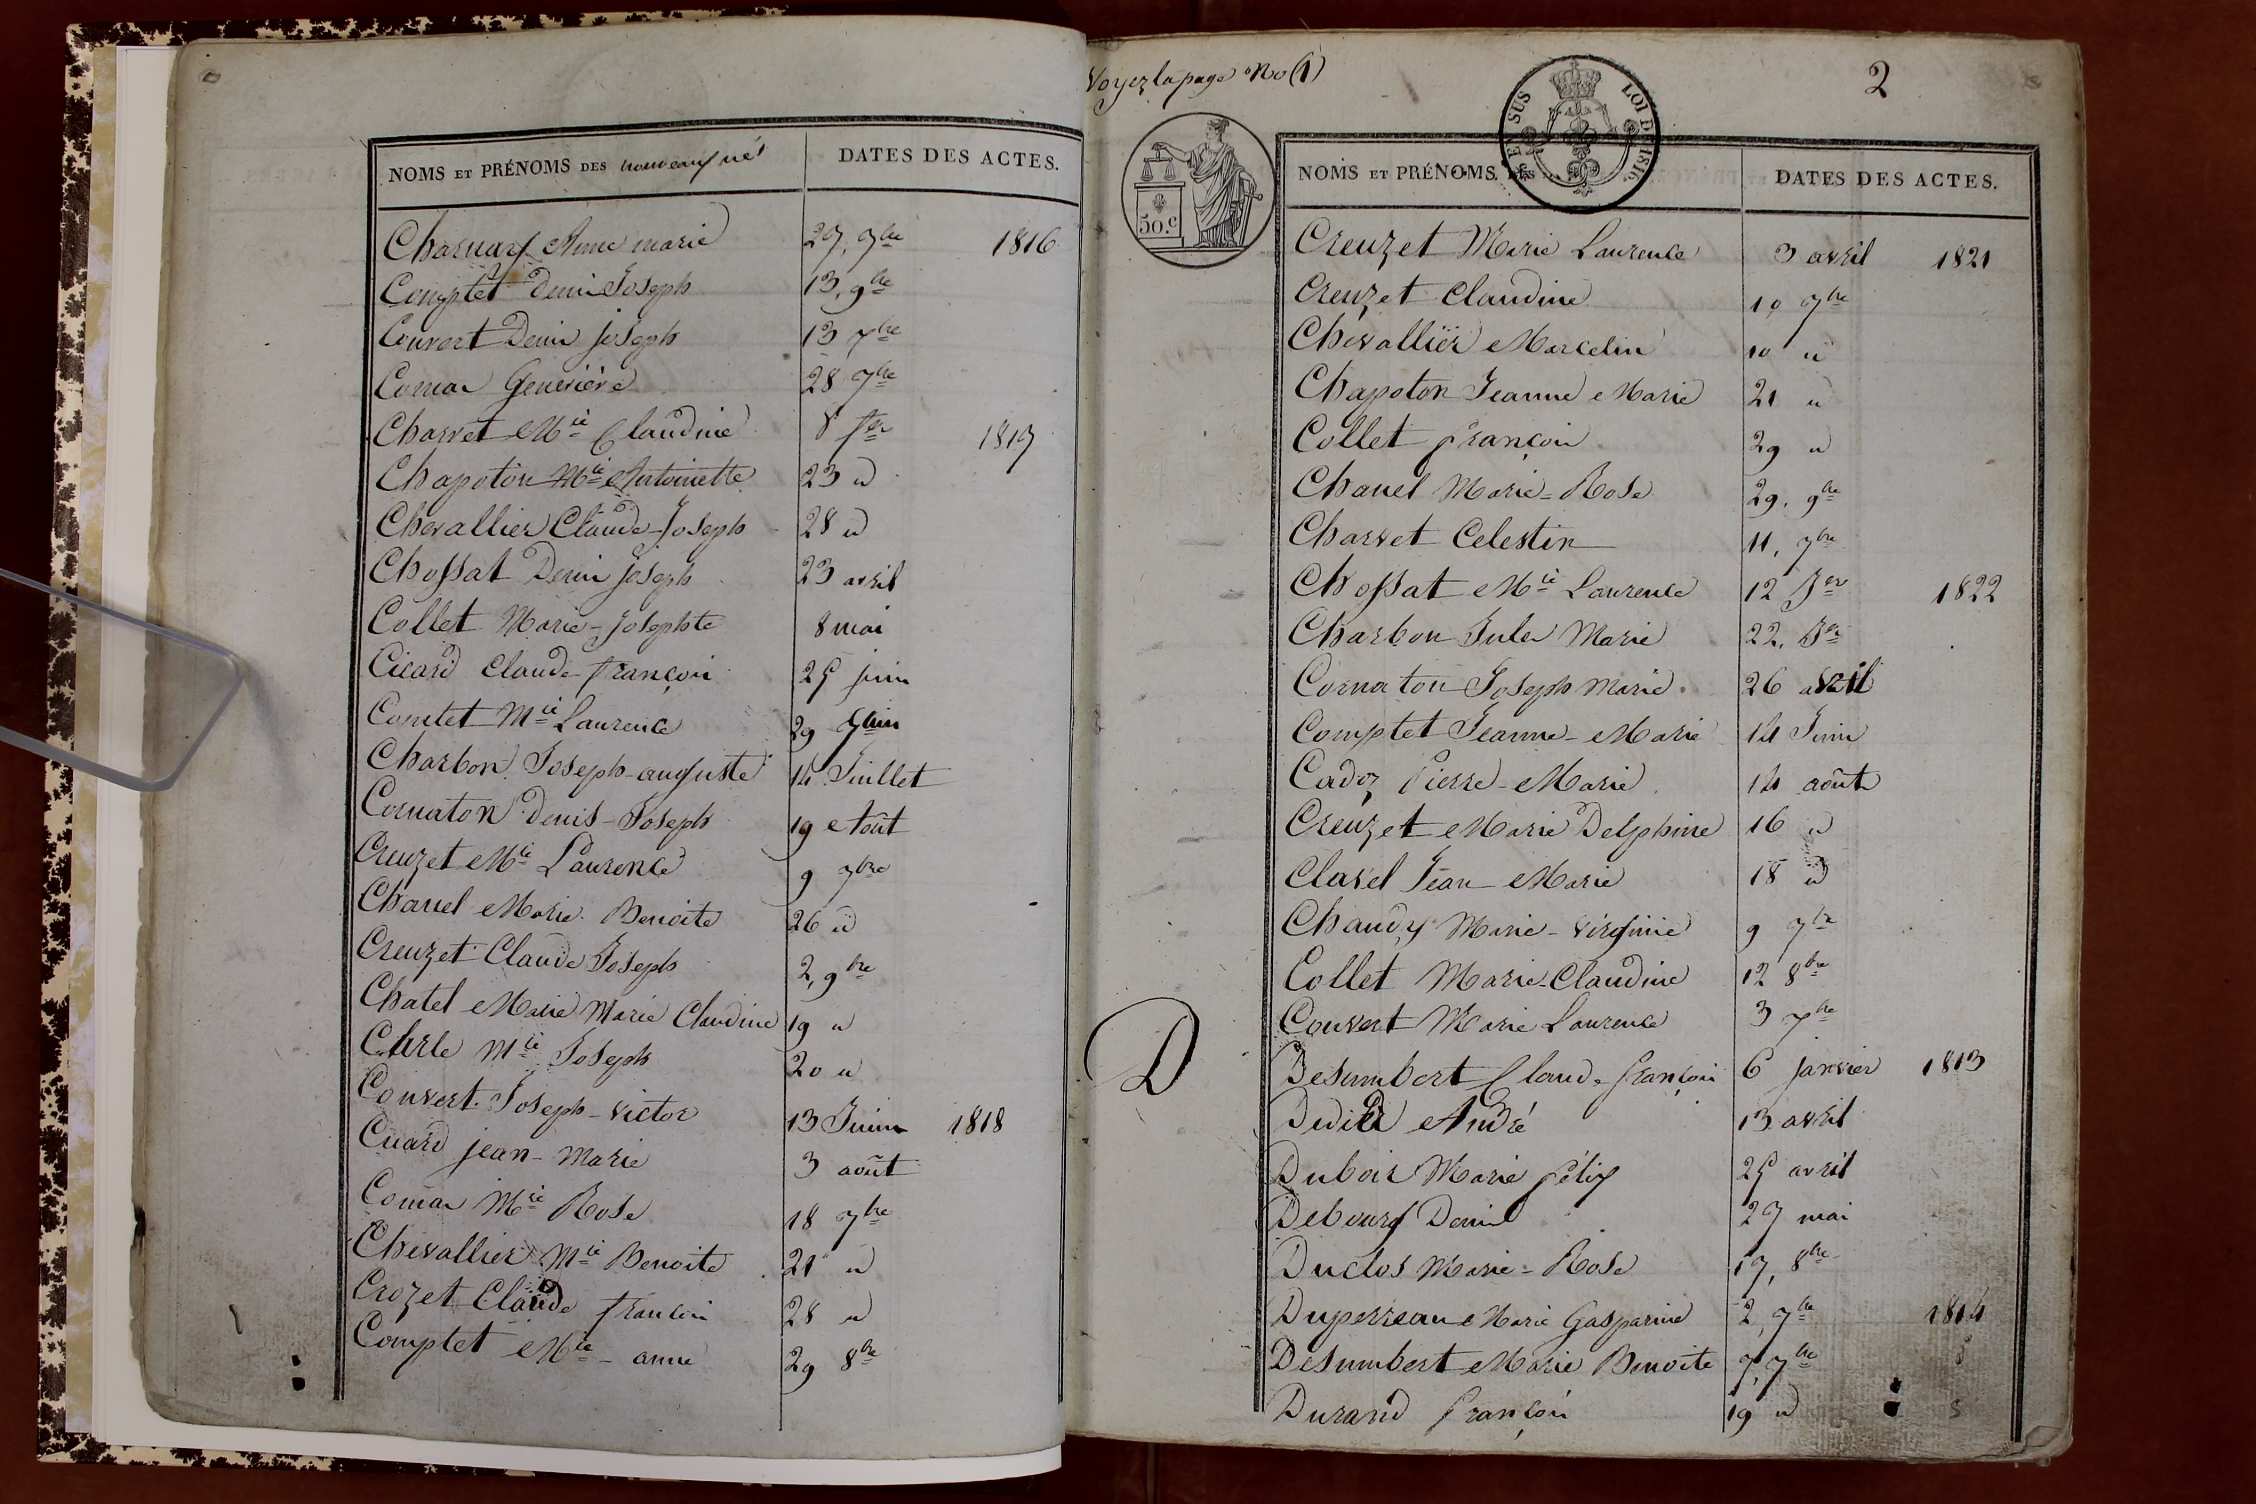 NOMS ET PRÉNOMS DES nouveaux nés DATES DES ACTES.
Charnay Anne marie 27, 7bre 1816
Comptet Denis Joseph 13, 9bre
Couvert Denis joseph 13 7bre
Comas Genevieve 28 7bre
Charvet Mie Claudine 8 1817
Chapoton Mie Antoinette 23 id
Chevallier Claude-Joseph 28 id
Chossat Denis joseph 23 avril
Collet Marie-josephte 8 mai
Cicard Claude françois 25 juin
Comtet Mie Laurence 29 Juin
Charbon Joseph-auguste 14 Juillet
Cornaton Denis-Joseph 19 Aout
Creuzet Mie Laurence 9 7bre
Chanel Marie Benoite 26 id
Creuzet Claude Joseph 2, 9bre
Chatel Marie Marie Claudine 19 id
Mie Joseph 20 id
Couvert Joseph-victor 13 Juin 1818
Cicard jean-Marie 3 août
Comas Mie Rose 18 7bre
Chevallier Mie Benoite 21 id
Crozet Claude françois 28 id
Comptet Mie-anne 29 8bre
Voyez la page No (1)
2
50.c
LOI DE 1816.
NOMS ET PRÉNOMS. DES DATES DES ACTES.
Creuzet Marie Laurence 3 avril 1821
Creuzet Claudine 10 7bre
Chevallier Marcelin 10 id
Chapoton Jeanne Marie 21 id
Collet françois 29 id
Chanel Marie-Rose 29. 9bre
Charvet Celestin 11, 7bre
Chossat Mie Laurence 12 Jer 1822
Charbon Jules Marie 22.
Cornaton Joseph Marie 26 avril
Comptet Jeanne-Marie 14 Juin
Cadoz Pierre-Marie 14 août
Creuzet Marie Delphine 16 id
Clavel Jean Marie 18 id
Chaudy Marie-virginie 9 7bre
Collet Marie-Claudine 12 8bre
Couvert Marie Laurence 3 7bre
D
Desumbert Claude françois 6 janvier 1813
Didier André 13 avril
Dubois Marie félix 25 avril
Debourg Denis 27 mai
Duclos Marie-Rose 17, 8bre
Duperreau Marie Gasparine 2, 7bre 1814
Desumbert Marie Benoite 7, 7bre
Durand françois 19 id